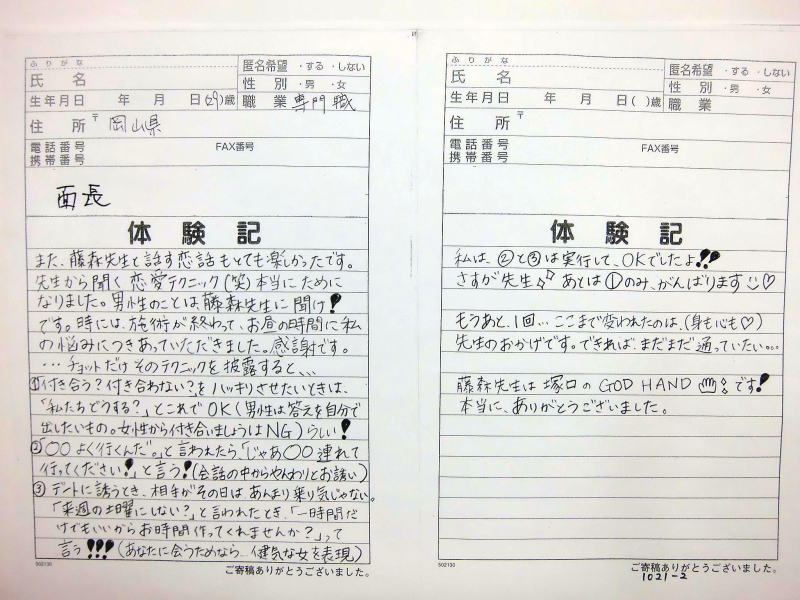 ふりがな
氏名
匿名希望 ・する ・しない
性別 ・男 ・女
生年月日 年 月 日(29)歳
職業 専門職
住所 〒 岡山県
電話番号 FAX番号
携帯番号
面長
体験記
また、藤森先生と話す恋話もとても楽しかったです。
先生から聞く恋愛テクニック(笑)本当にために
なりました。男性のことは藤森先生に聞け!
です。時には、施術が終わって、お昼の時間に私
の悩みにつきあっていただきました。感謝です。
…チョットだけそのテクニックを披露すると、、、
①付き合う?付き合わない?をハッキリさせたいときは、
「私たちどうする?」とこれでOK(男性は答えを自分で
出したいもの。女性から付き合いましょうはNG)らしい!
②「〇〇よく行くんだ。」と言われたら、「じゃあ〇〇連れて
行ってください!」と言う!(会話の中からやんわりとお誘い)
③デートに誘うとき、相手がその日はあんまり乗り気じゃない。
「来週の土曜にしない?」と言われたとき、「一時間だ
けでもいいからお時間作ってくれませんか?」って
言う!!!(あなたに会うためなら…健気な女を表現)
502130
ご寄稿ありがとうございました。
ふりがな
氏名
匿名希望 ・する ・しない
性別 ・男 ・女
生年月日 年 月 日( )歳
職業
住所 〒
電話番号 FAX番号
携帯番号
体験記
私は、②と③は実行して、OKでしたよ!!
さすが先生 あとは①のみ、がんばります♡
もうあと、1回…ここまで変われたのは、(身も心も♡)
先生のおかげです。できれば、まだまだ通っていたい…
藤森先生は塚口のGOD HANDです!
本当に、ありがとうございました。
502130
ご寄稿ありがとうございました。
1021-2